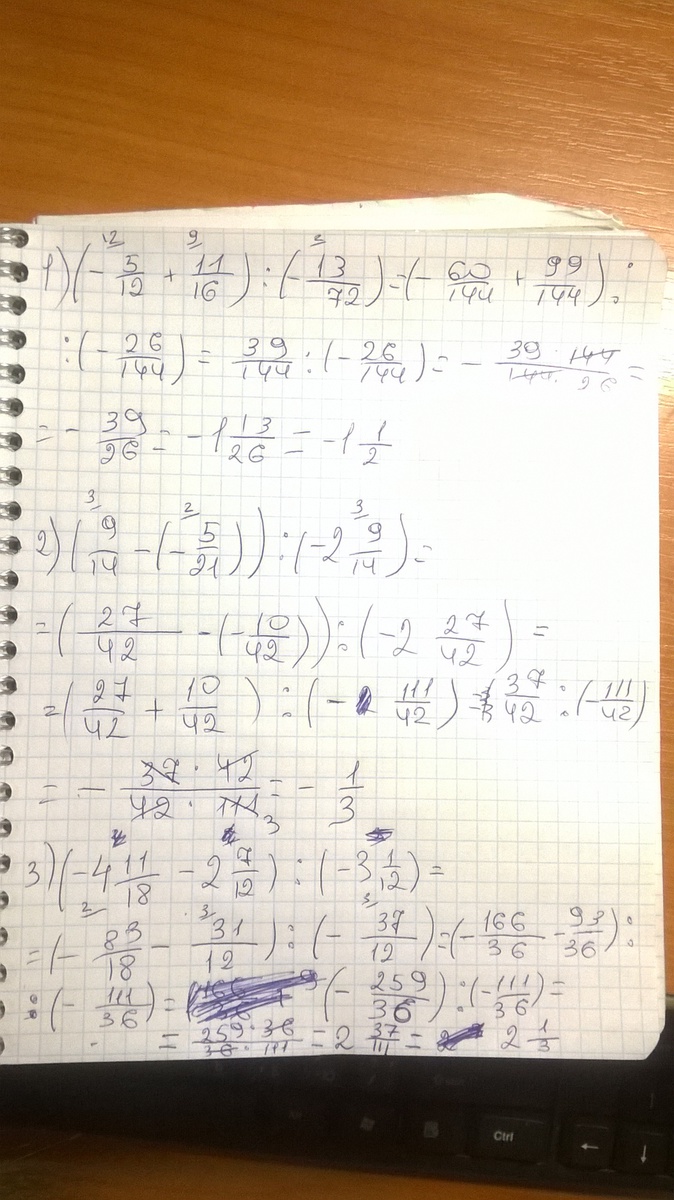 12 9 2
1) (- 5/12 + 11/16) : (- 13/72) = (- 60/144 + 99/144) :
: (- 26/144) = 39/144 : (- 26/144) = - 39 · 144/144 · 26 =
= - 39/26 = -1 13/26 = -1 1/2
3 2 3
2) (9/14 - (- 5/21)) : (-2 9/14) =
= (27/42 - (- 10/42)) : (-2 27/42) =
= (27/42 + 10/42) : (- 111/42) = 37/42 : (- 111/42)
= - 37 · 42/42 · 111 3 = - 1/3
3) (-4 11/18 - 2 7/12) : (-3 1/12) =
2 3 3
= (- 83/18 - 31/12) : (- 37/12) = (- 166/36 - 93/36) :
: (- 111/36) = (- 259/36) : (- 111/36) =
= 259 · 36/36 · 111 = 2 37/111 = 2 1/3
Ctrl
← ↓